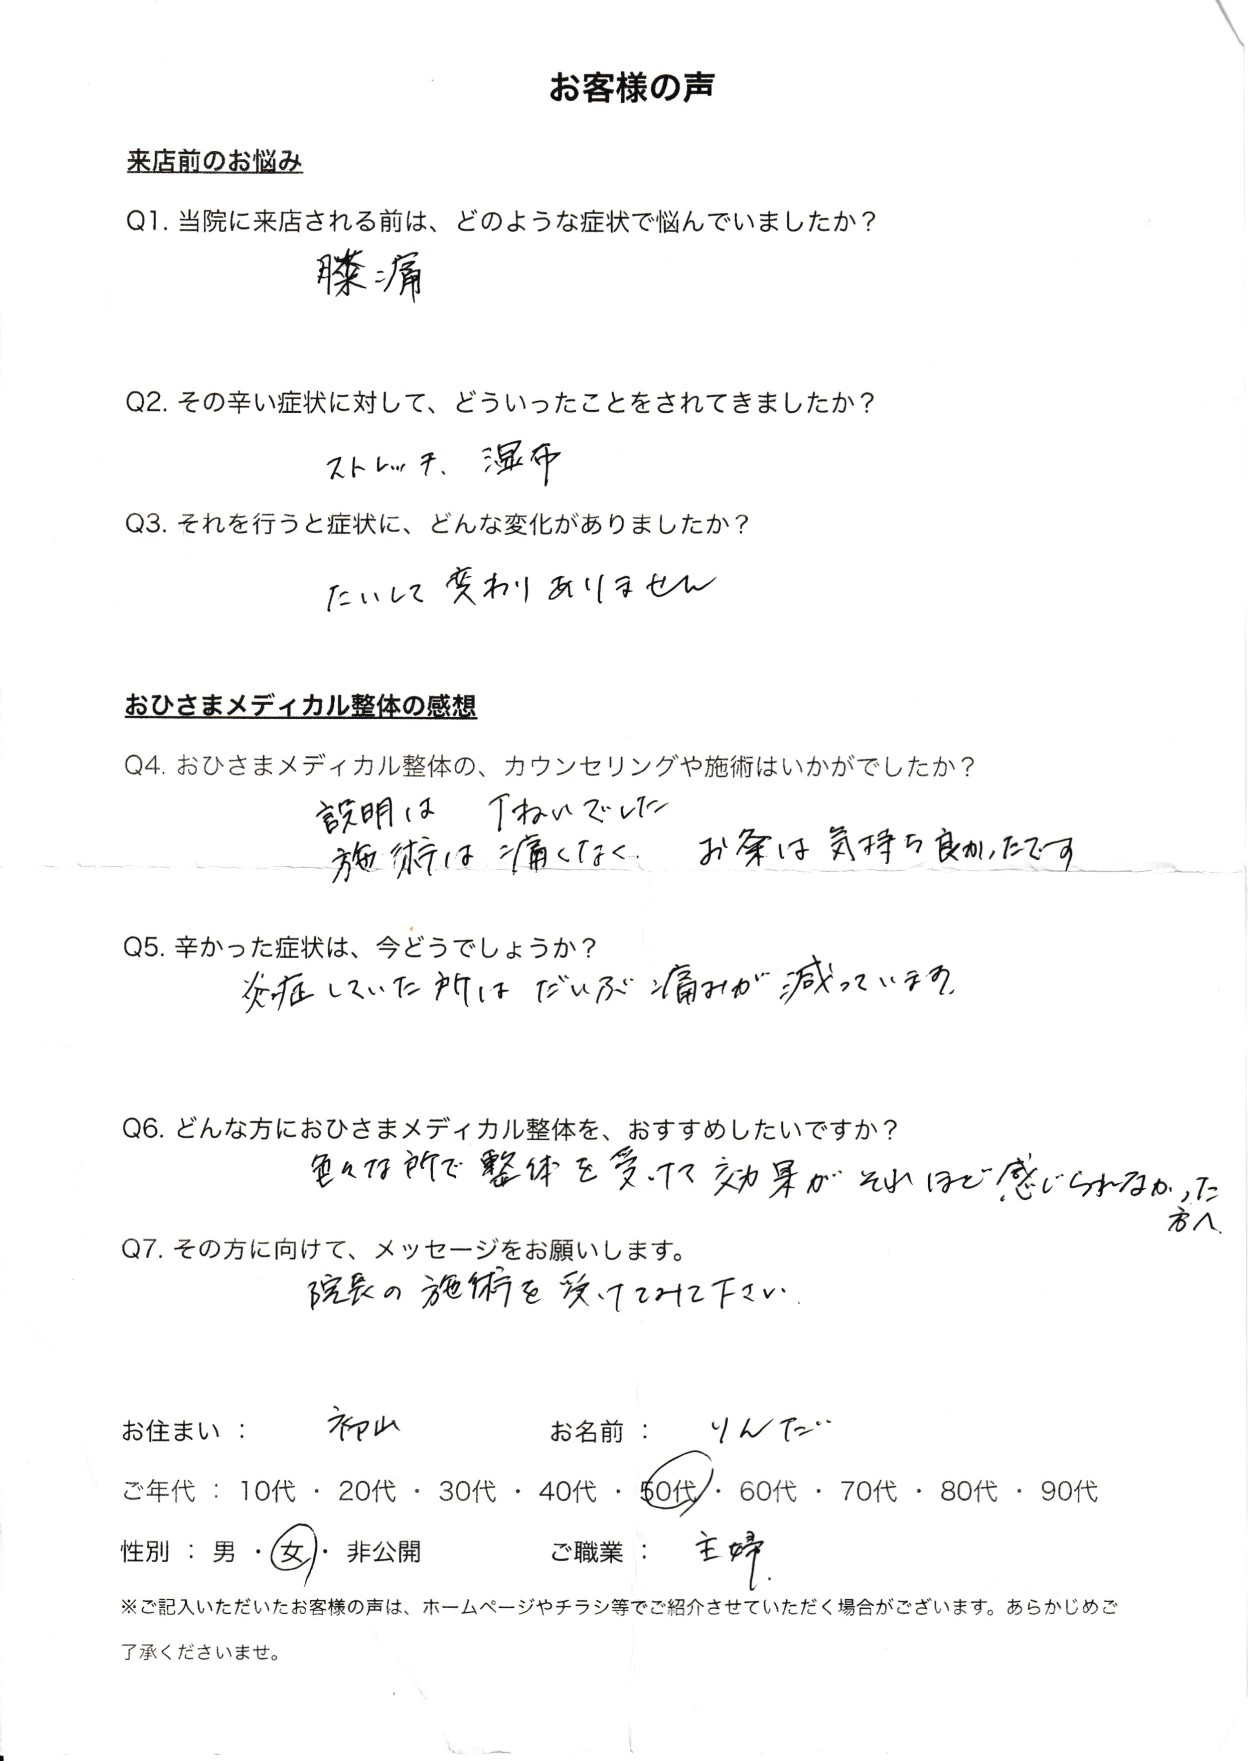 お客様の声
来店前のお悩み
Q1. 当院に来店される前は、どのような症状で悩んでいましたか？
膝痛
Q2. その辛い症状に対して、どういったことをされてきましたか？
ストレッチ、湿布
Q3. それを行うと症状に、どんな変化がありましたか？
たいして変わりありません
おひさまメディカル整体の感想
Q4. おひさまメディカル整体の、カウンセリングや施術はいかがでしたか？
説明は 丁ねいでした
施術は痛くなく、 お灸は気持ち良かったです
Q5. 辛かった症状は、今どうでしょうか？
炎症していた所はだいぶ痛みが減っています。
Q6. どんな方におひさまメディカル整体を、おすすめしたいですか？
色々な所で整体を受けて効果がそれほど感じられなかった
方へ
Q7. その方に向けて、メッセージをお願いします。
院長の施術を受けてみて下さい。
お住まい ： 初山 お名前 ： りんだ
ご年代 ： 10代 ・ 20代 ・ 30代 ・ 40代 ・ 50代 ・ 60代 ・ 70代 ・ 80代 ・ 90代
性別 ： 男 ・ 女 ・ 非公開 ご職業 ： 主婦
※ご記入いただいたお客様の声は、ホームページやチラシ等でご紹介させていただく場合がございます。あらかじめご
了承くださいませ。